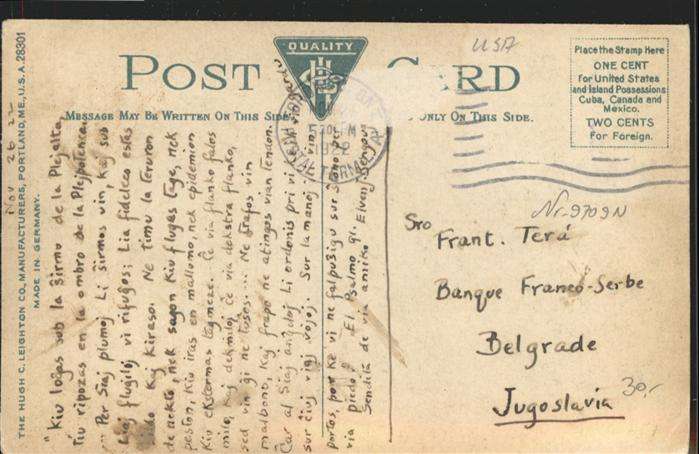 THE HUGH C. LEIGHTON CO., MANUFACTURERS, PORTLAND, ME., U.S.A. 28301
MADE IN GERMANY.
Nov 26 22
QUALITY
POST CARD
USA
MESSAGE MAY BE WRITTEN ON THIS SIDE.
ONLY ON THIS SIDE.
Place the Stamp Here
ONE CENT
for United States
and Island Possessions
Cuba, Canada and
Mexico.
TWO CENTS
For Foreign.
"Kiu loĝas sub la Ŝirmo de la Plejalta,
Tiu ripozas en la ombro de la Plejpotenca.
Per Siaj plumoj Li Ŝirmos vin, kaj sub
Liaj flugiloj vi rifuĝos; Lia fideleco estas
kaj Kiraso. Ne timu la teruron
de nokto, nek sagon Kiu flugas tage, nek
peston, Kiu iras en mallumo, nek epidemion
Kiu ekstermas tagmeze. Ĉe via flanko falos
milo, kaj dekmiloj ĉe via dekstra flanko,
sed vin ĝi ne tuŝos... Ne trafos vin
malbono, Kaj frapo ne atingos vian tendon.
Ĉar al Siaj anĝeloj Li ordonis pri vi
sur ĉiuj viaj vojoj. Sur la manoj vin
portos, por ke vi ne falpuŝiĝu sur ŝtono
via piedo." El Psalmo 91.
Sendita de via amiko
Nr-9709N
Sro
Frant. Terá
Banque Franco-Serbe
Belgrade
Jugoslavia
30,-